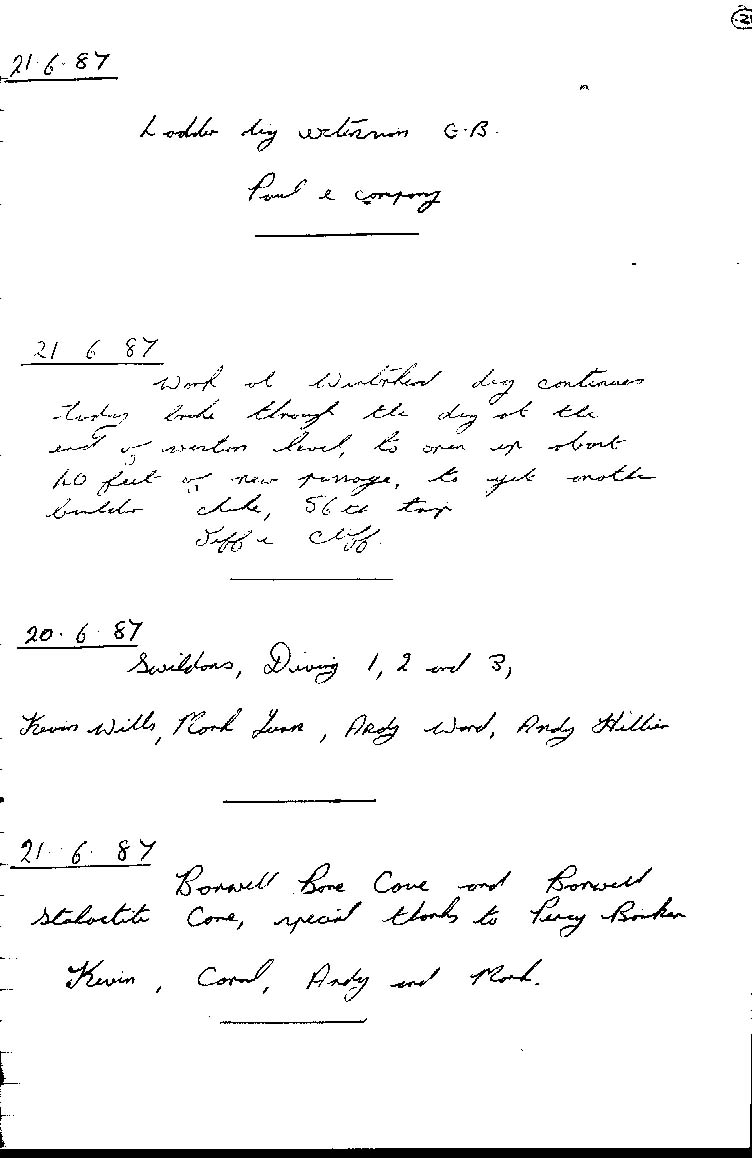 21·6·87
Ladder dig extension G.B.
Paul & company
21 6 87
Work at dig continues
today broke through the dig at the
end of western level, to open up about
40 feet of new passage, to yet another
boulder choke, 56th trip
Jeff & Cliff.
20·6·87
Swildons, Diving 1, 2 and 3,
Kevin Wills, Mark, Andy Ward, Andy Hillier
21·6·87
Banwell Bone Cave and Banwell
Stalactite Cave, special thanks to Percy
Kevin, Carol, Andy and Mark.